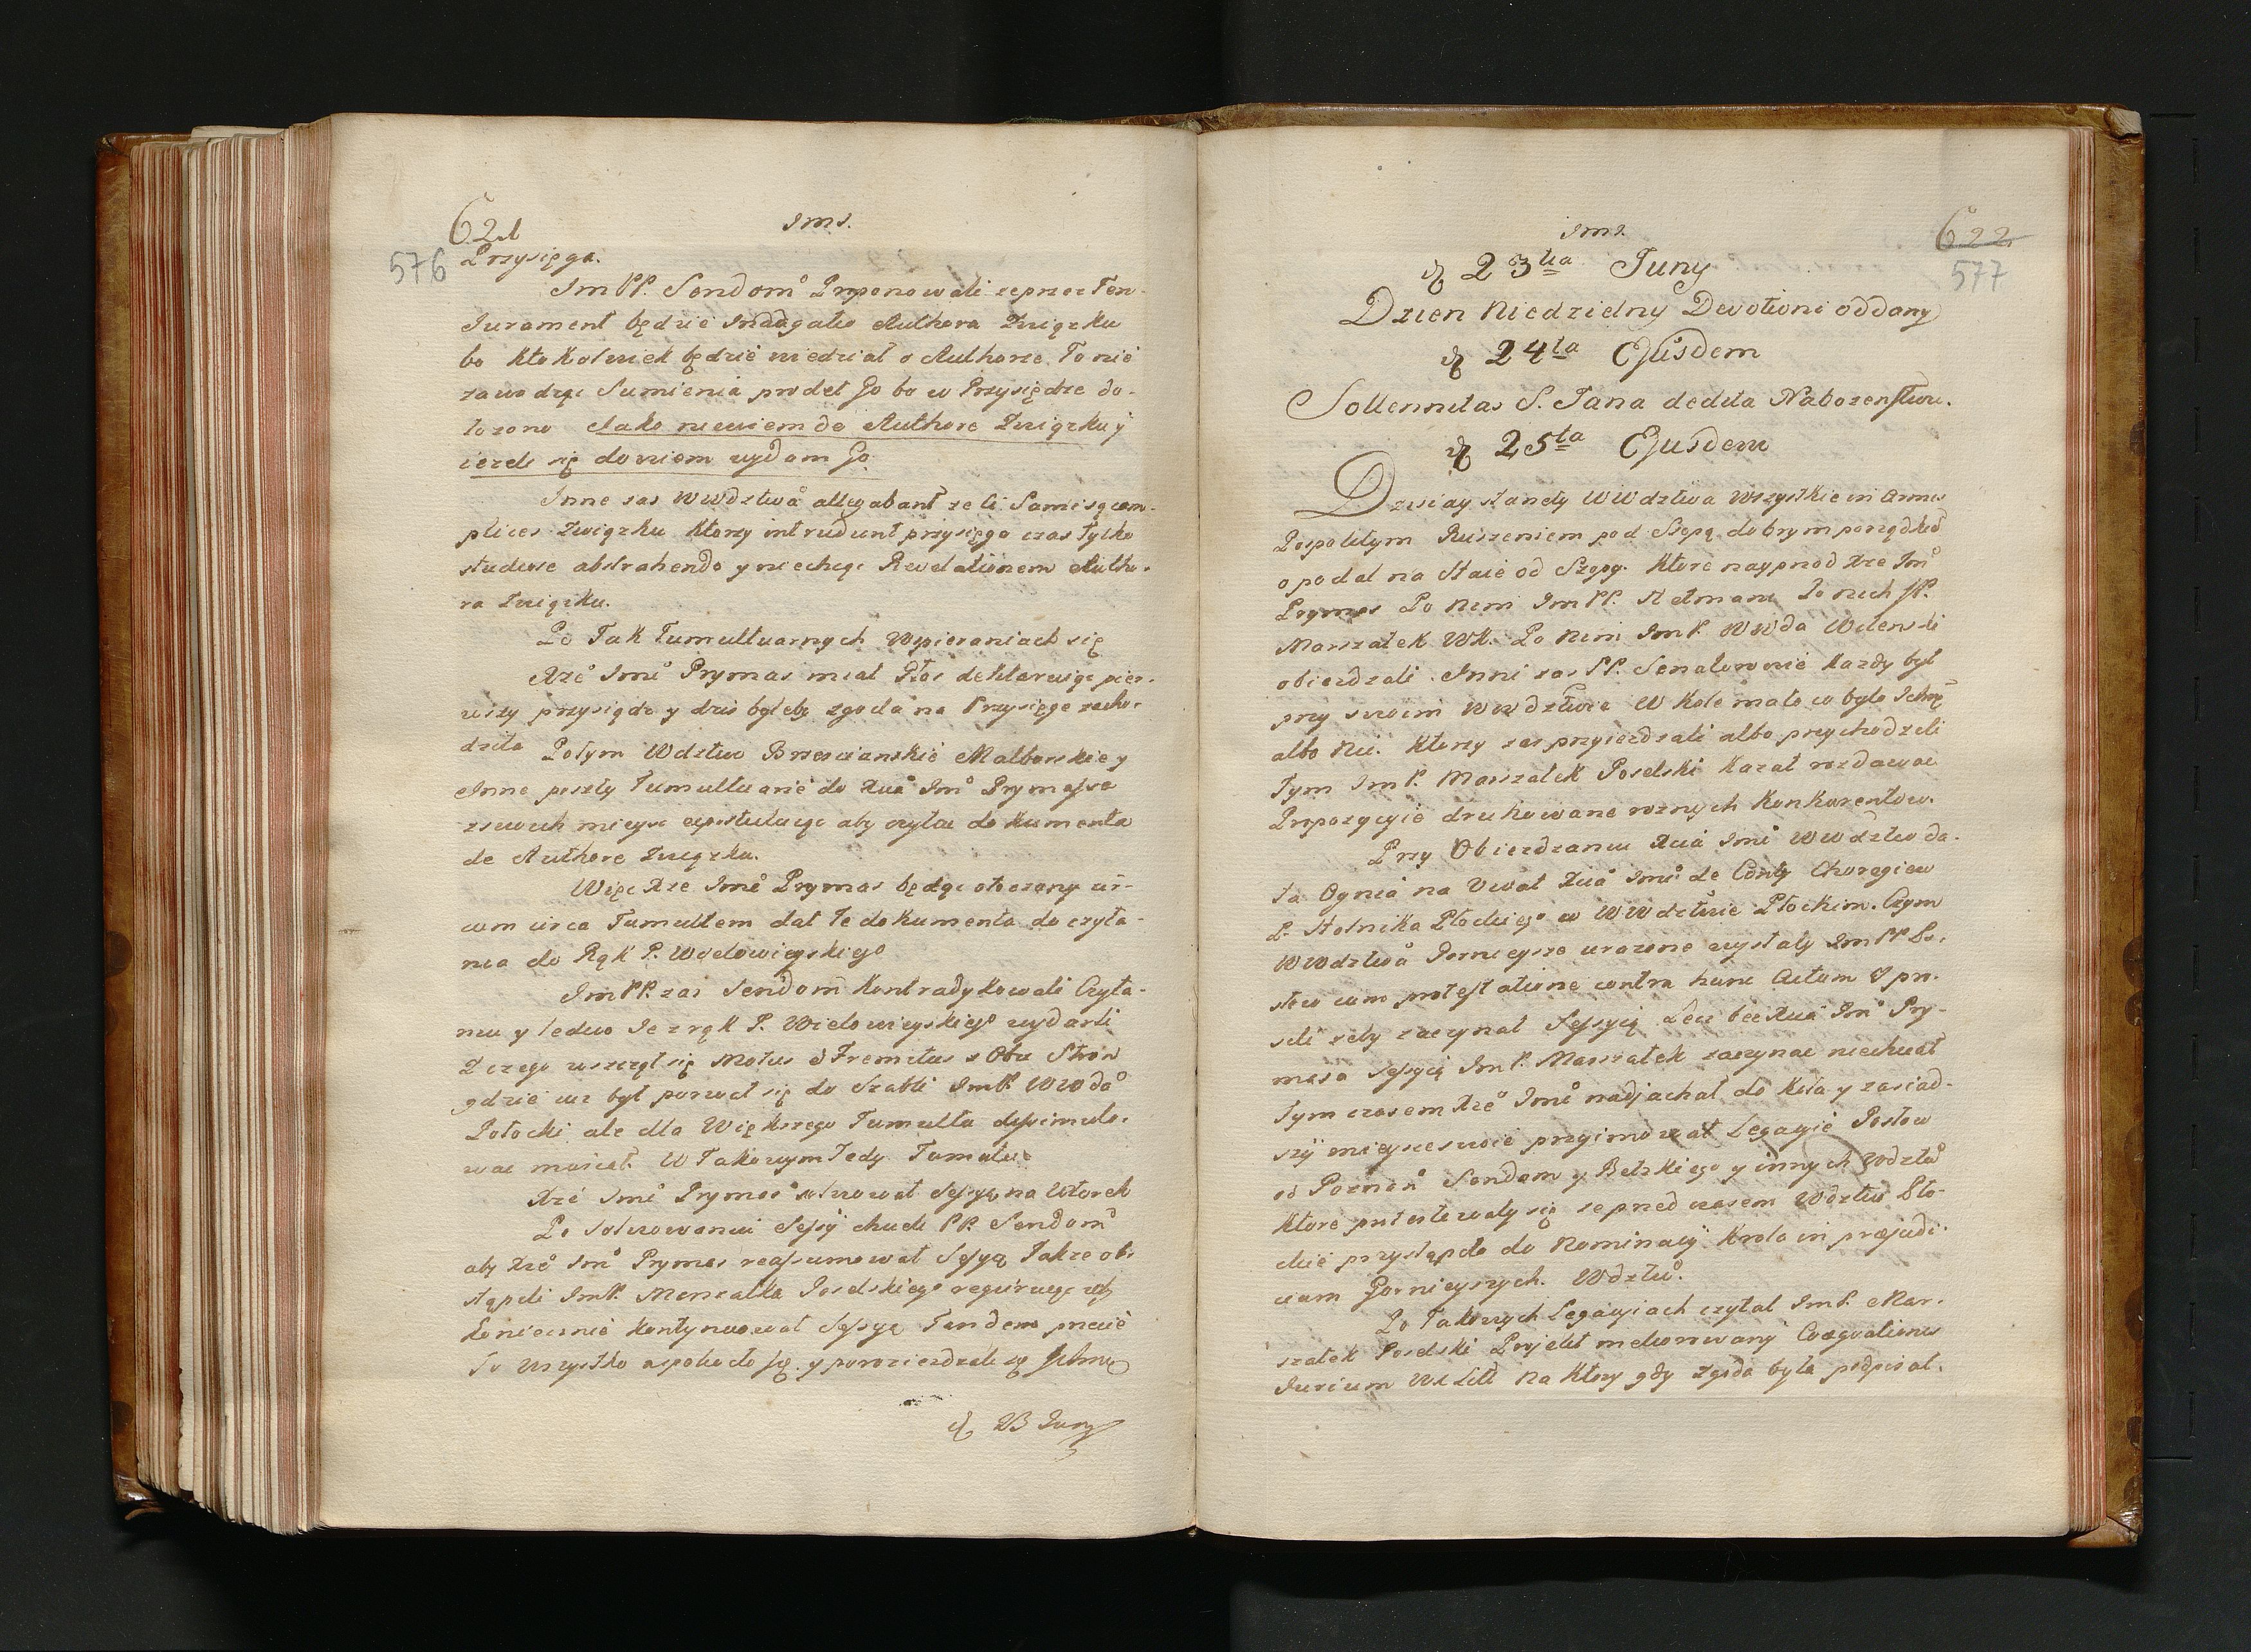 621
Jms.
576
Przysięga.
Jm PP. Sendomº Proponowali ze przez Ten
Jurament będzie Indagatio Authora Związku
bo ktokolwiek będzie wiedział o Authorze To nie
zawodząc Sumienia prodet Go bo w Przysiędze do-
łozono Jako niewiem de Authore Związku y
iezeli się dowiem wydam Go
Inne zas Wwdztwa allegabant ze Ci Sami są com-
plices Związku Ktorzy intrudunt przysięgę czas Tylko
studiose abstrahendo y niechcąc Revelationem Autho-
ra Związku.
Po Tak Tumultuarnych Wspieraniach się
Xżę Jmć Prymas miał Głos deklaruiąc pier-
wszy przysiądz y dziś byleby zgoda na Przysięgę zacho-
dziła
Potym Wdztwo Brzescianskie Malborskie y
Inne poszły Tumultuarie do Xcia Jmci Prymassa
z swoich mieysc expostuluiąc aby czytac dokumenta
de Authore Związku.
Więc Xże Jmć Prymas będąc otoczony cir-
cum circa Tumultem dał Te dokumenta do czyta-
nia do Rąk P. Wielowieyskiego
Jm PP. zas Sendom Kontradykowali Czyta-
niu y ledwo Je z rąk P. Wielowieyskiego wydarli
Z czego wszczął się Motus et Fremitus z Obu Stron
gdzie iuz był porwał się do Szabli Jm P. Wwda
Połocki ale dla Większego Tumultu dissimulo-
wac musiał. W Takowym Tedy Tumulcie
Xże Jmć Prymas solwował Sessyą na Wtorek
Po solwowaniu Sessyi chcieli PP. Sendom
aby Xżę Jmć Prymas reassumował Sessyą Takze ob-
stąpili Jm P. Marszałka Poselskiego requiruiąc zeby
koniecznie kontynuował Sessyą Tandem precie
To wszystko uspokoiło się y porozieżdzali się
d 23 Juny
Jms
622
577
d 23tia Juny
Dzien Niedzielny Devotioni oddany
d 24ta Ejusdem
Sollennitas S. Jana dedita Nabozenstwu.
d 25ta Ejusdem
Dzisiay stanęły Wwdztwa Wszystkie in Armis
Pospolitym Ruszeniem pod Szopą dobrym porządkiem
opodal na Staie od Szopy. Ktore nayprzod Xże Jmć
Prymas Po nim Jm PP. Hetmani Po nich JP.
Marszałek WK. Po nim Jm P. Wwda Wilenski
obieżdzali. Inni zas PP. Senatorowie kazdy był
przy swoim Wwdztwie W Kole mało co było Ichmć
albo nic. Ktorzy zas przyieżdzali albo przychodzili
Tym Jm P. Marszałek Poselski kazał rozdawac
Propozycyie drukowane roznych Konkurentow.
Przy Obieżdzaniu Xcia Jmci Wwdztw da-
ła Ognia na Vivat Xcia Jmci de Conty Choragiew
P. Stolnika Płockiego w Wwdztwie Płockim. Czym
Wwdztwa Pornieysze urazone wysłały Jm PP Po-
słow cum protestatione contra hunc Actum y pro-
sili zeby zaczynał Sessyią Lecz bez Xcia Jmci Pry-
masa Sessyią Jm P. Marszałek zaczynac niechciał
Tym czasem Xże Jmć nadjachał do Koła y zasiad-
szy mieysce swoie przyimował Legacyie Posłow
od Poznan Sendom y Bełzkiego y innych Wdztw
Ktore protestowały się ze przed czasem Wdztwo Pło-
ckie przystąpiło do Nominacyi Krola in praejudi-
cium Gornieyszych. Wdztw.
Po Takowych Legacyiach czytał Jm P. Mar-
szałek Poselski Projekt meliorowany Coaequationis
Jurium WX Litt na Ktory gdy zgoda była podpisał.